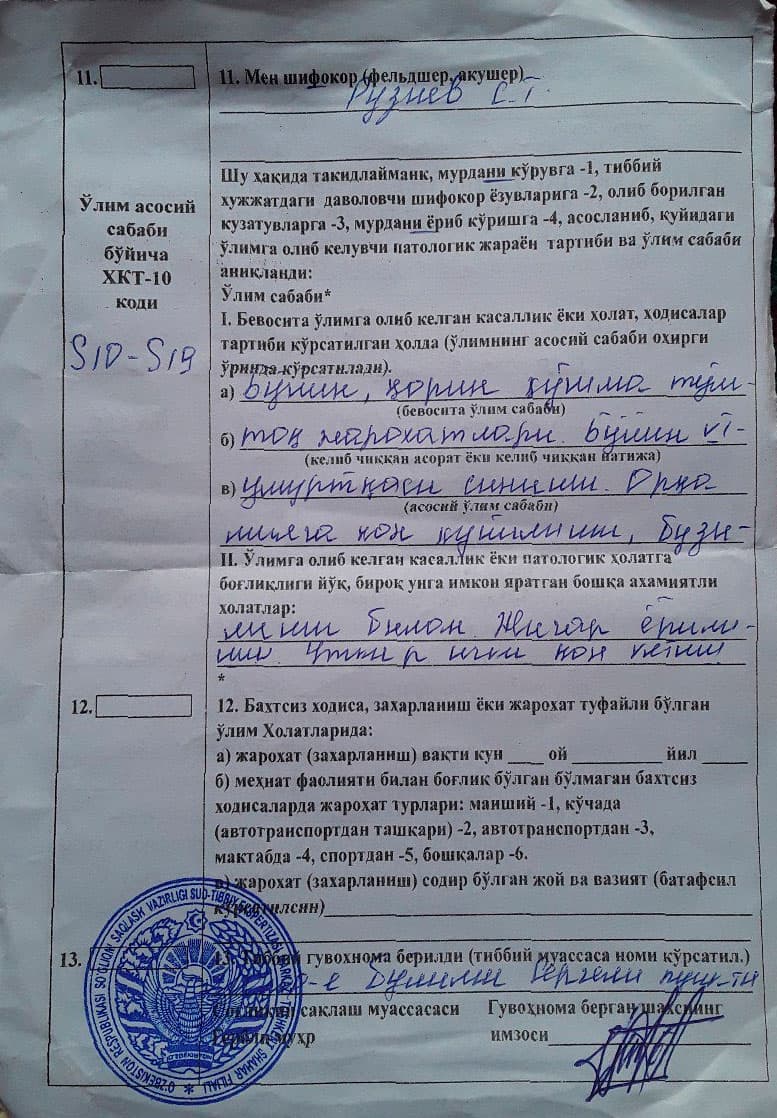 11.
11. Мен шифокор (фельдшер, акушер)
Рузиев С.Т.
Шу ҳақида такидлайманк, мурдани кўрувга -1, тиббий
хужжатдаги даволовчи шифокор ёзувларига -2, олиб борилган
кузатувларга -3, мурдани ёриб кўришга -4, асосланиб, қуйидаги
ўлимга олиб келувчи патологик жараён тартиби ва ўлим сабаби
аниқланди:
Ўлим сабаби*
Ўлим асосий
сабаби
бўйича
ХКТ-10
коди
S10-S19
I. Бевосита ўлимга олиб келган касаллик ёки ҳолат, ҳодисалар
тартиби кўрсатилган ҳолда (ўлимнинг асосий сабаби охирги
ўринда кўрсатилади).
а) Бўйин, қорин қўшма тўм-
(бевосита ўлим сабаби)
б) тоқ жарохатлари. Бўйин VI-
(келиб чиққан асорат ёки келиб чиққан натижа)
в) умуртқаси синиши. Орқа
(асосий ўлим сабаби)
мияга қон қуйилиши, бузи-
II. Ўлимга олиб келган касаллик ёки патологик ҳолатга
боғлиқлиги йўқ, бироқ унга имкон яратган бошқа ахамиятли
ҳолатлар:
лиши билан. Жигар ёрили-
ши. Ўткир ички қон кетиш
*
12.
12. Бахтсиз ходиса, захарланиш ёки жарохат туфайли бўлган
ўлим Холатларида:
а) жарохат (захарланиш) вақти кун ____ ой ____ йил ____
б) меҳнат фаолияти билан боғлиқ бўлган бўлмаган бахтсиз
ходисаларда жарохат турлари: маиший -1, кўчада
(автотранспортдан ташқари) -2, автотранспортдан -3,
мактабда -4, спортдан -5, бошқалар -6.
в) жарохат (захарланиш) содир бўлган жой ва вазият (батафсил
кўрсатилсин)
13.
13. Тиббий гувохнома берилди (тиббий муассаса номи кўрсатил.)
Соғлиқни сақлаш муассасаси
Гербли муҳр
Гувоҳнома берган шахснинг
имзоси
O'ZBEKISTON RESPUBLIKASI SOG'LIQNI SAQLASH VAZIRLIGI SUD-TIBBIY EKSPERTIZA
SHAHAR FILIALI